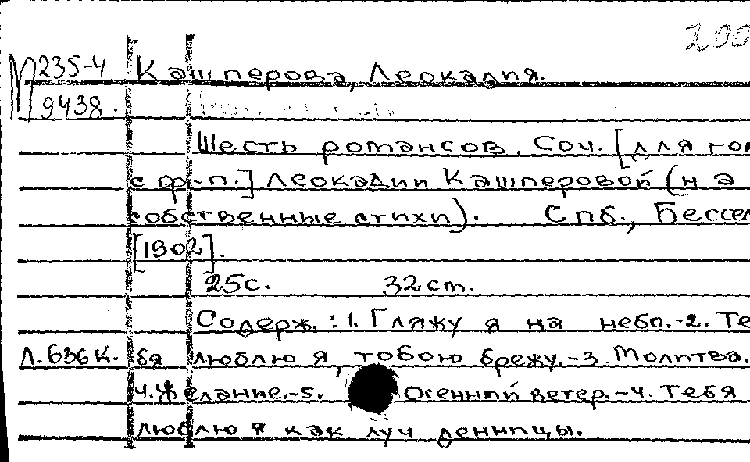 200
М 235-4 Кашперова, Леокадия.
9438.
Шесть романсов. Соч. [для гол
с ф.-п.] Леокадии Кашперовой (на
собственные стихи). Спб., Бессел
[1902].
25с. 32 cm.
Содерж.: 1. Гляжу я на небо.-2. Те
Л.636К. бя люблю я, тобою брежу.-3 Молитва.
4. Желание.-5. Осенний ветер.-4. Тебя
люблю я как луч денницы.